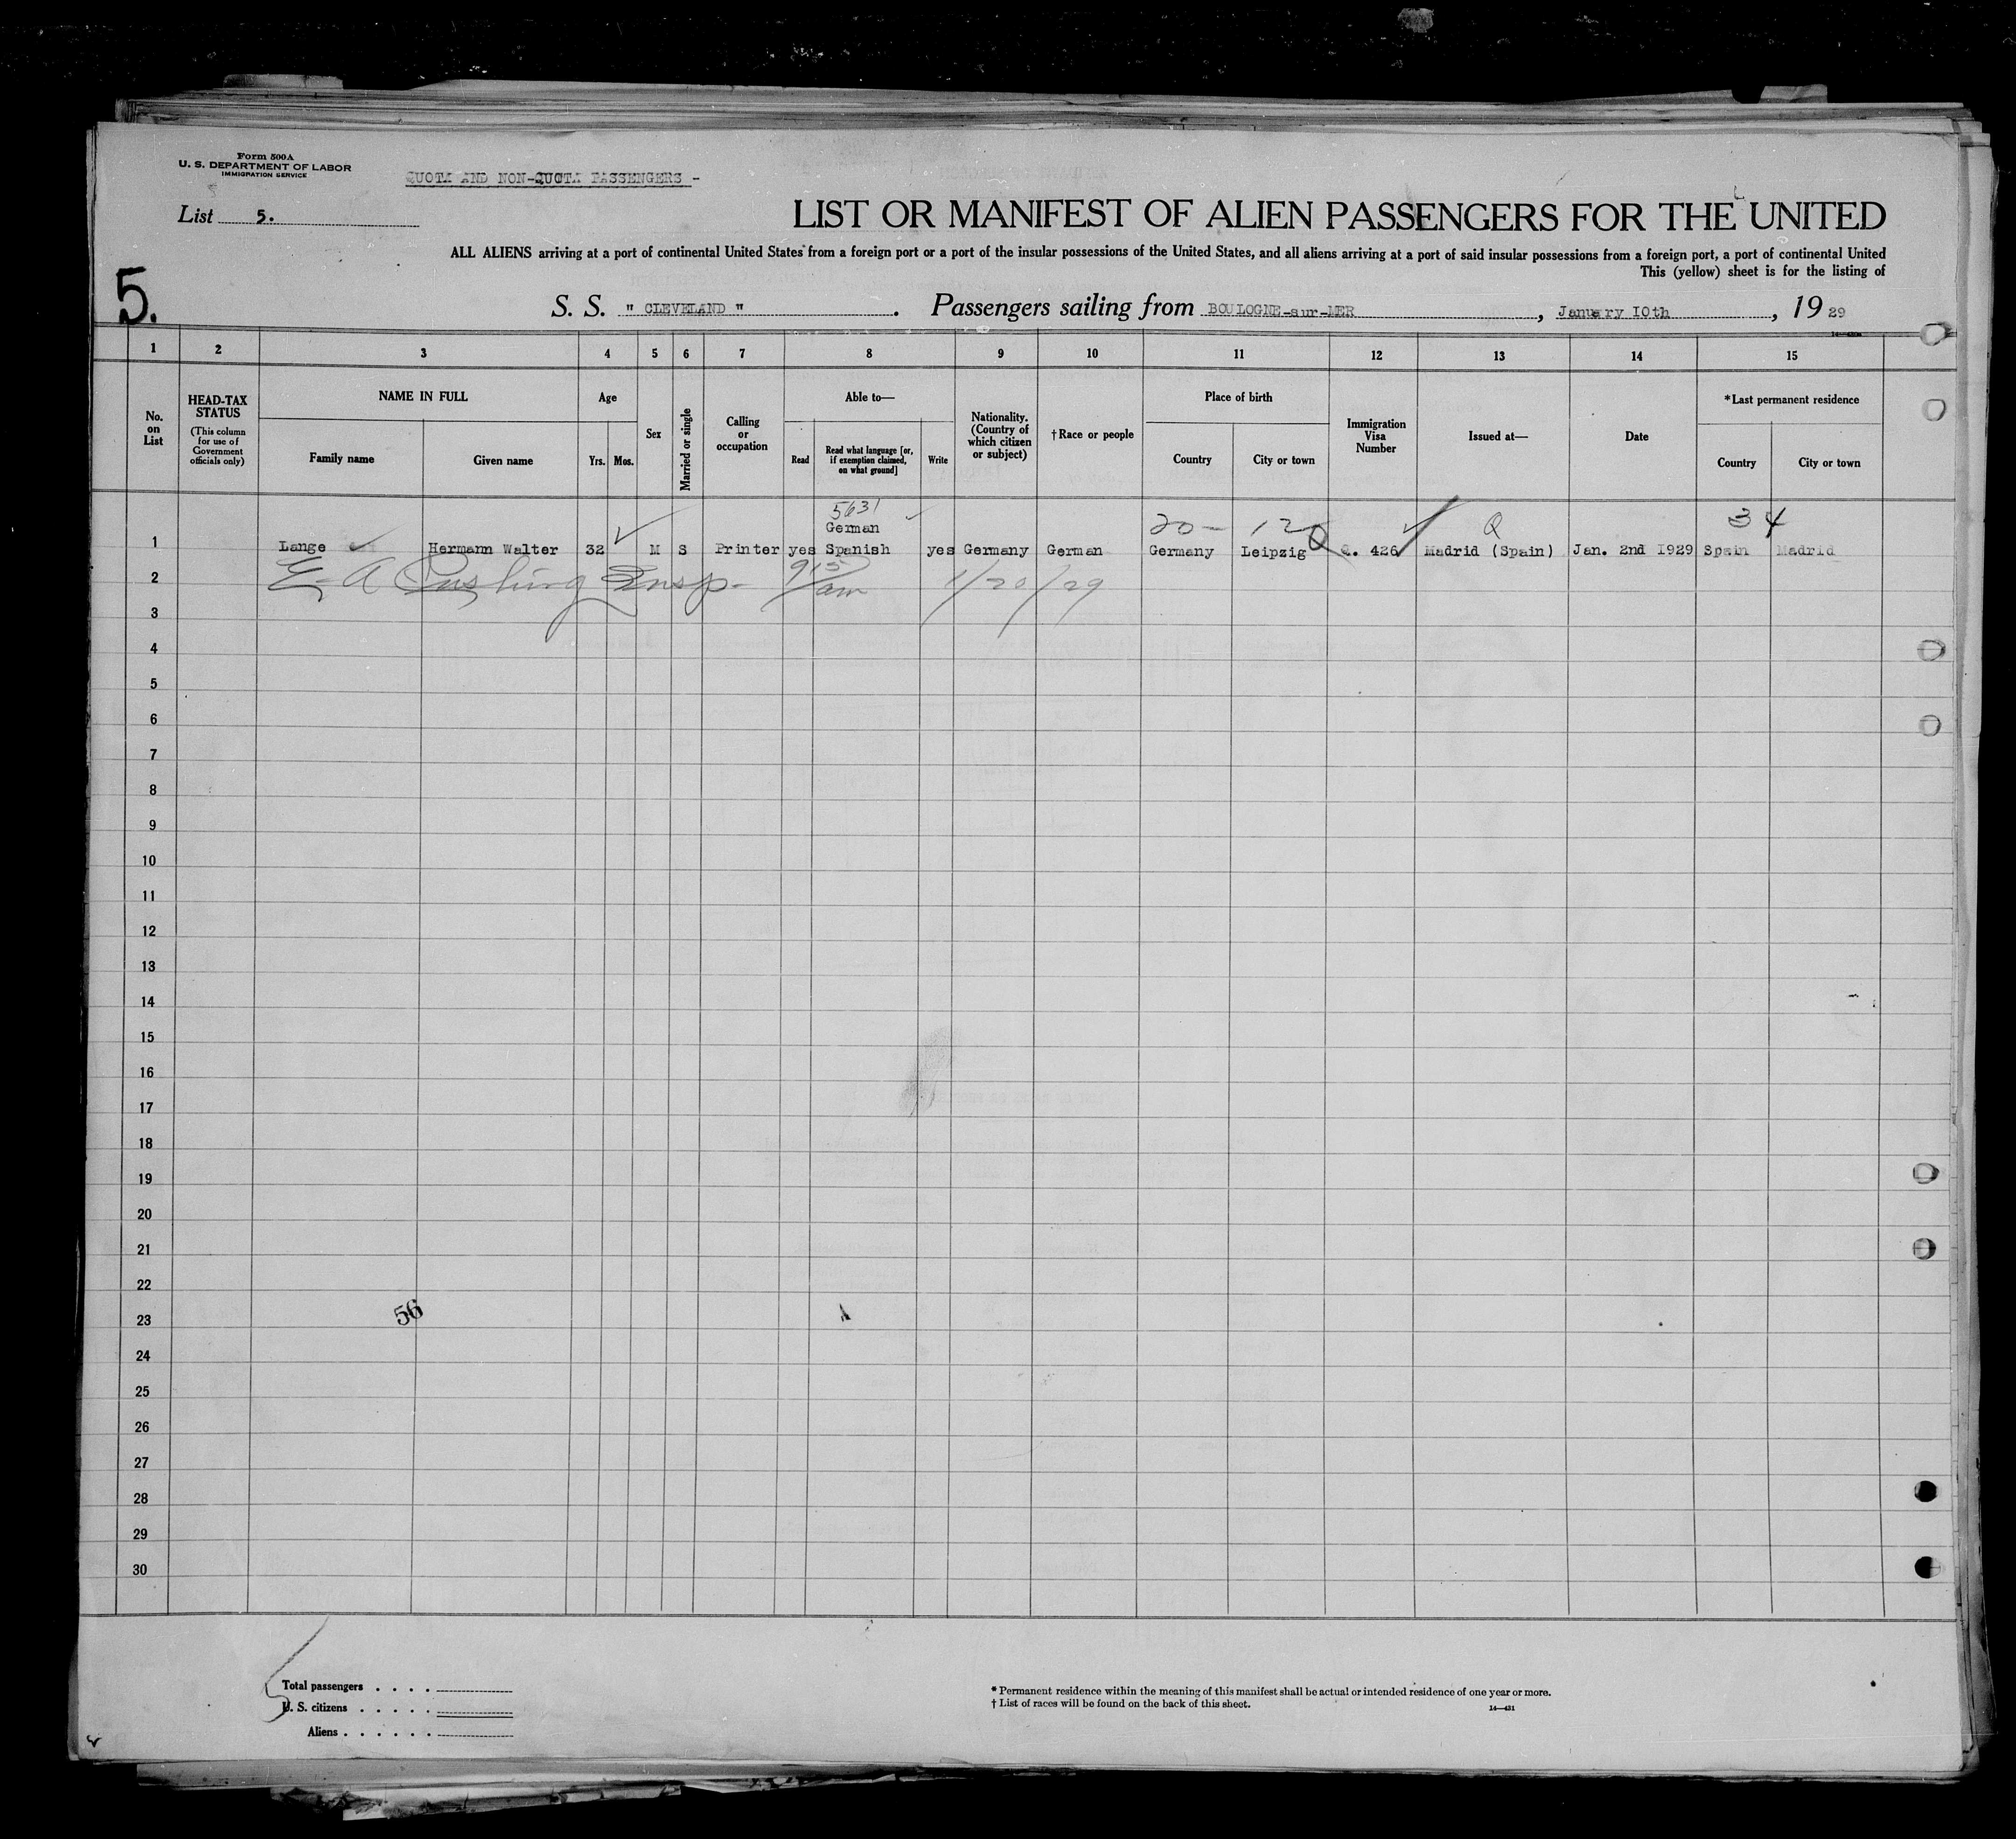 Form 500A
U. S. DEPARTMENT OF LABOR
IMMIGRATION SERVICE
QUOTA AND NON-QUOTA PASSENGERS -
List 5.
LIST OR MANIFEST OF ALIEN PASSENGERS FOR THE UNITED
ALL ALIENS arriving at a port of continental United States from a foreign port or a port of the insular possessions of the United States, and all aliens arriving at a port of said insular possessions from a foreign port, a port of continental United
This (yellow) sheet is for the listing of
5.
S. S. " CLEVELAND ". Passengers sailing from BOULOGNE-sur-MER, January 10th, 19 29
1 2 3 4 5 6 7 8 9 10 11 12 13 14 15
No. on List
HEAD-TAX STATUS (This column for use of Government officials only)
NAME IN FULL
Family name
Given name
Age
Yrs. Mos.
Sex
Married or single
Calling or occupation
Able to—
Read
Read what language [or, if exemption claimed, on what ground]
Write
Nationality. (Country of which citizen or subject)
†Race or people
Place of birth
Country
City or town
Immigration Visa Number
Issued at—
Date
*Last permanent residence
Country
City or town
5631 20- 120 Q 34
German
1 Lange Hermann Walter 32 M S Printer yes Spanish yes Germany German Germany Leipzig Q. 426 Madrid (Spain) Jan. 2nd 1929 Spain Madrid
2 E. A Cushing Insp- 915 am 1/20/29
3
4
5
6
7
8
9
10
11
12
13
14
15
16
17
18
19
20
21
22
23 56
24
25
26
27
28
29
30
Total passengers . . . .
U. S. citizens . . . . .
Aliens . . . . . .
* Permanent residence within the meaning of this manifest shall be actual or intended residence of one year or more.
† List of races will be found on the back of this sheet.
14—431